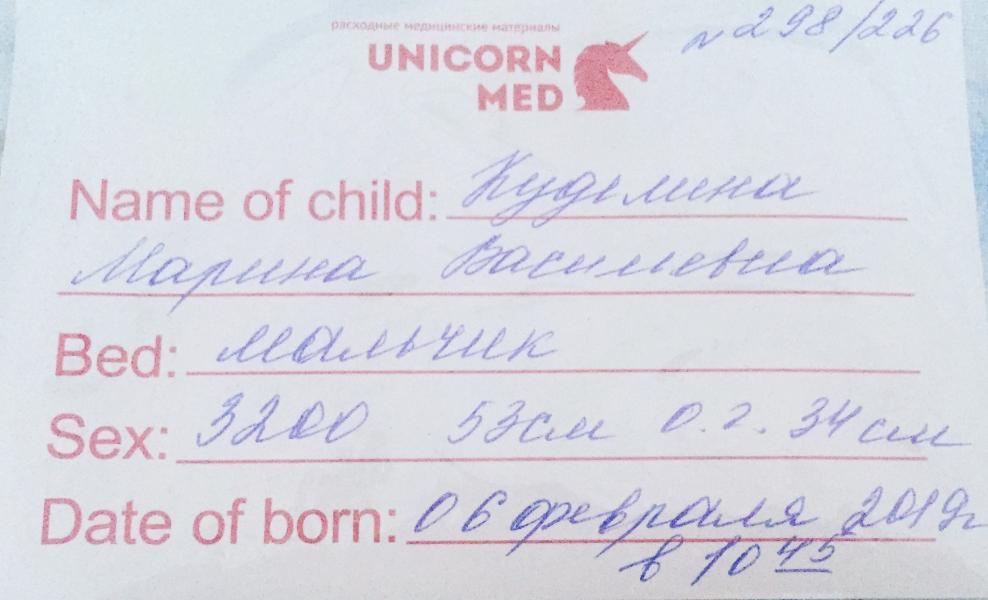 расходные медицинские материалы
№ 298/226
UNICORN
MED
Name of child: Куделина
Марина Васильевна
Bed: мальчик
Sex: 3200 53см о.г. 34 см
Date of born: 06 февраля 2019г
в 10 45